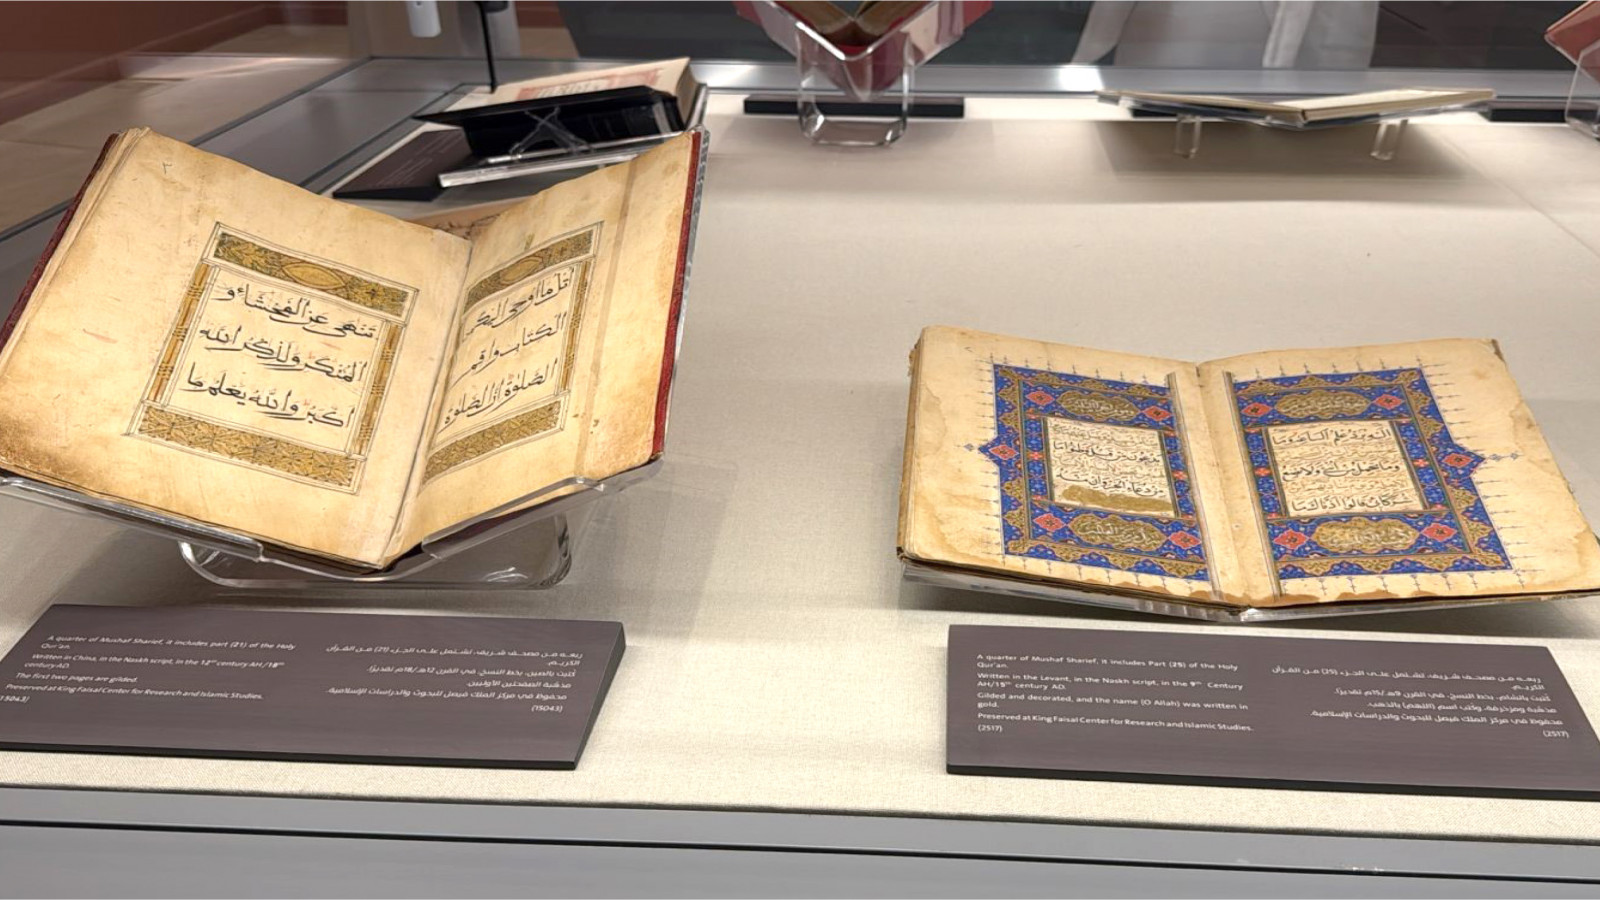 اتل ما اوحي اليك من
الكتاب واقم
الصلوة ان الصلوة
تنهى عن الفحشاء و
المنكر ولذكر الله
اكبر والله يعلم ما
A quarter of Mushaf Sharief, it includes part (21) of the Holy
Qur'an.
Written in China, in the Naskh script, in the 12th century AH/18th
century AD.
The first two pages are gilded.
Preserved at King Faisal Center for Research and Islamic Studies.
(15043)
ربعه من مصحف شريف، تشتمل على الجزء (21) من القرآن
الكريم.
كُتبت بالصين، بخط النسخ، في القرن 12هـ/18م تقديرًا.
مذهّبة الصفحتين الأوليين.
محفوظ في مركز الملك فيصل للبحوث والدراسات الإسلامية.
(15043)
اليه يرد علم الساعة وما
وما تحمل من انثى ولا تضع
شركائي قالوا اذناك ما
A quarter of Mushaf Sharief, it includes Part (25) of the Holy
Qur'an.
Written in the Levant, in the Naskh script, in the 9th Century
AH/15th century AD.
Gilded and decorated, and the name (O Allah) was written in
gold.
Preserved at King Faisal Center for Research and Islamic Studies.
(2517)
ربعه من مصحف شريف، تشتمل على الجزء (25) من القرآن
الكريم.
كُتبت بالشام، بخط النسخ، في القرن 9هـ/15م تقديرًا.
مذهّبة ومزخرفة، وكُتب اسم (اللهم) بالذهب.
محفوظ في مركز الملك فيصل للبحوث والدراسات الإسلامية.
(2517)